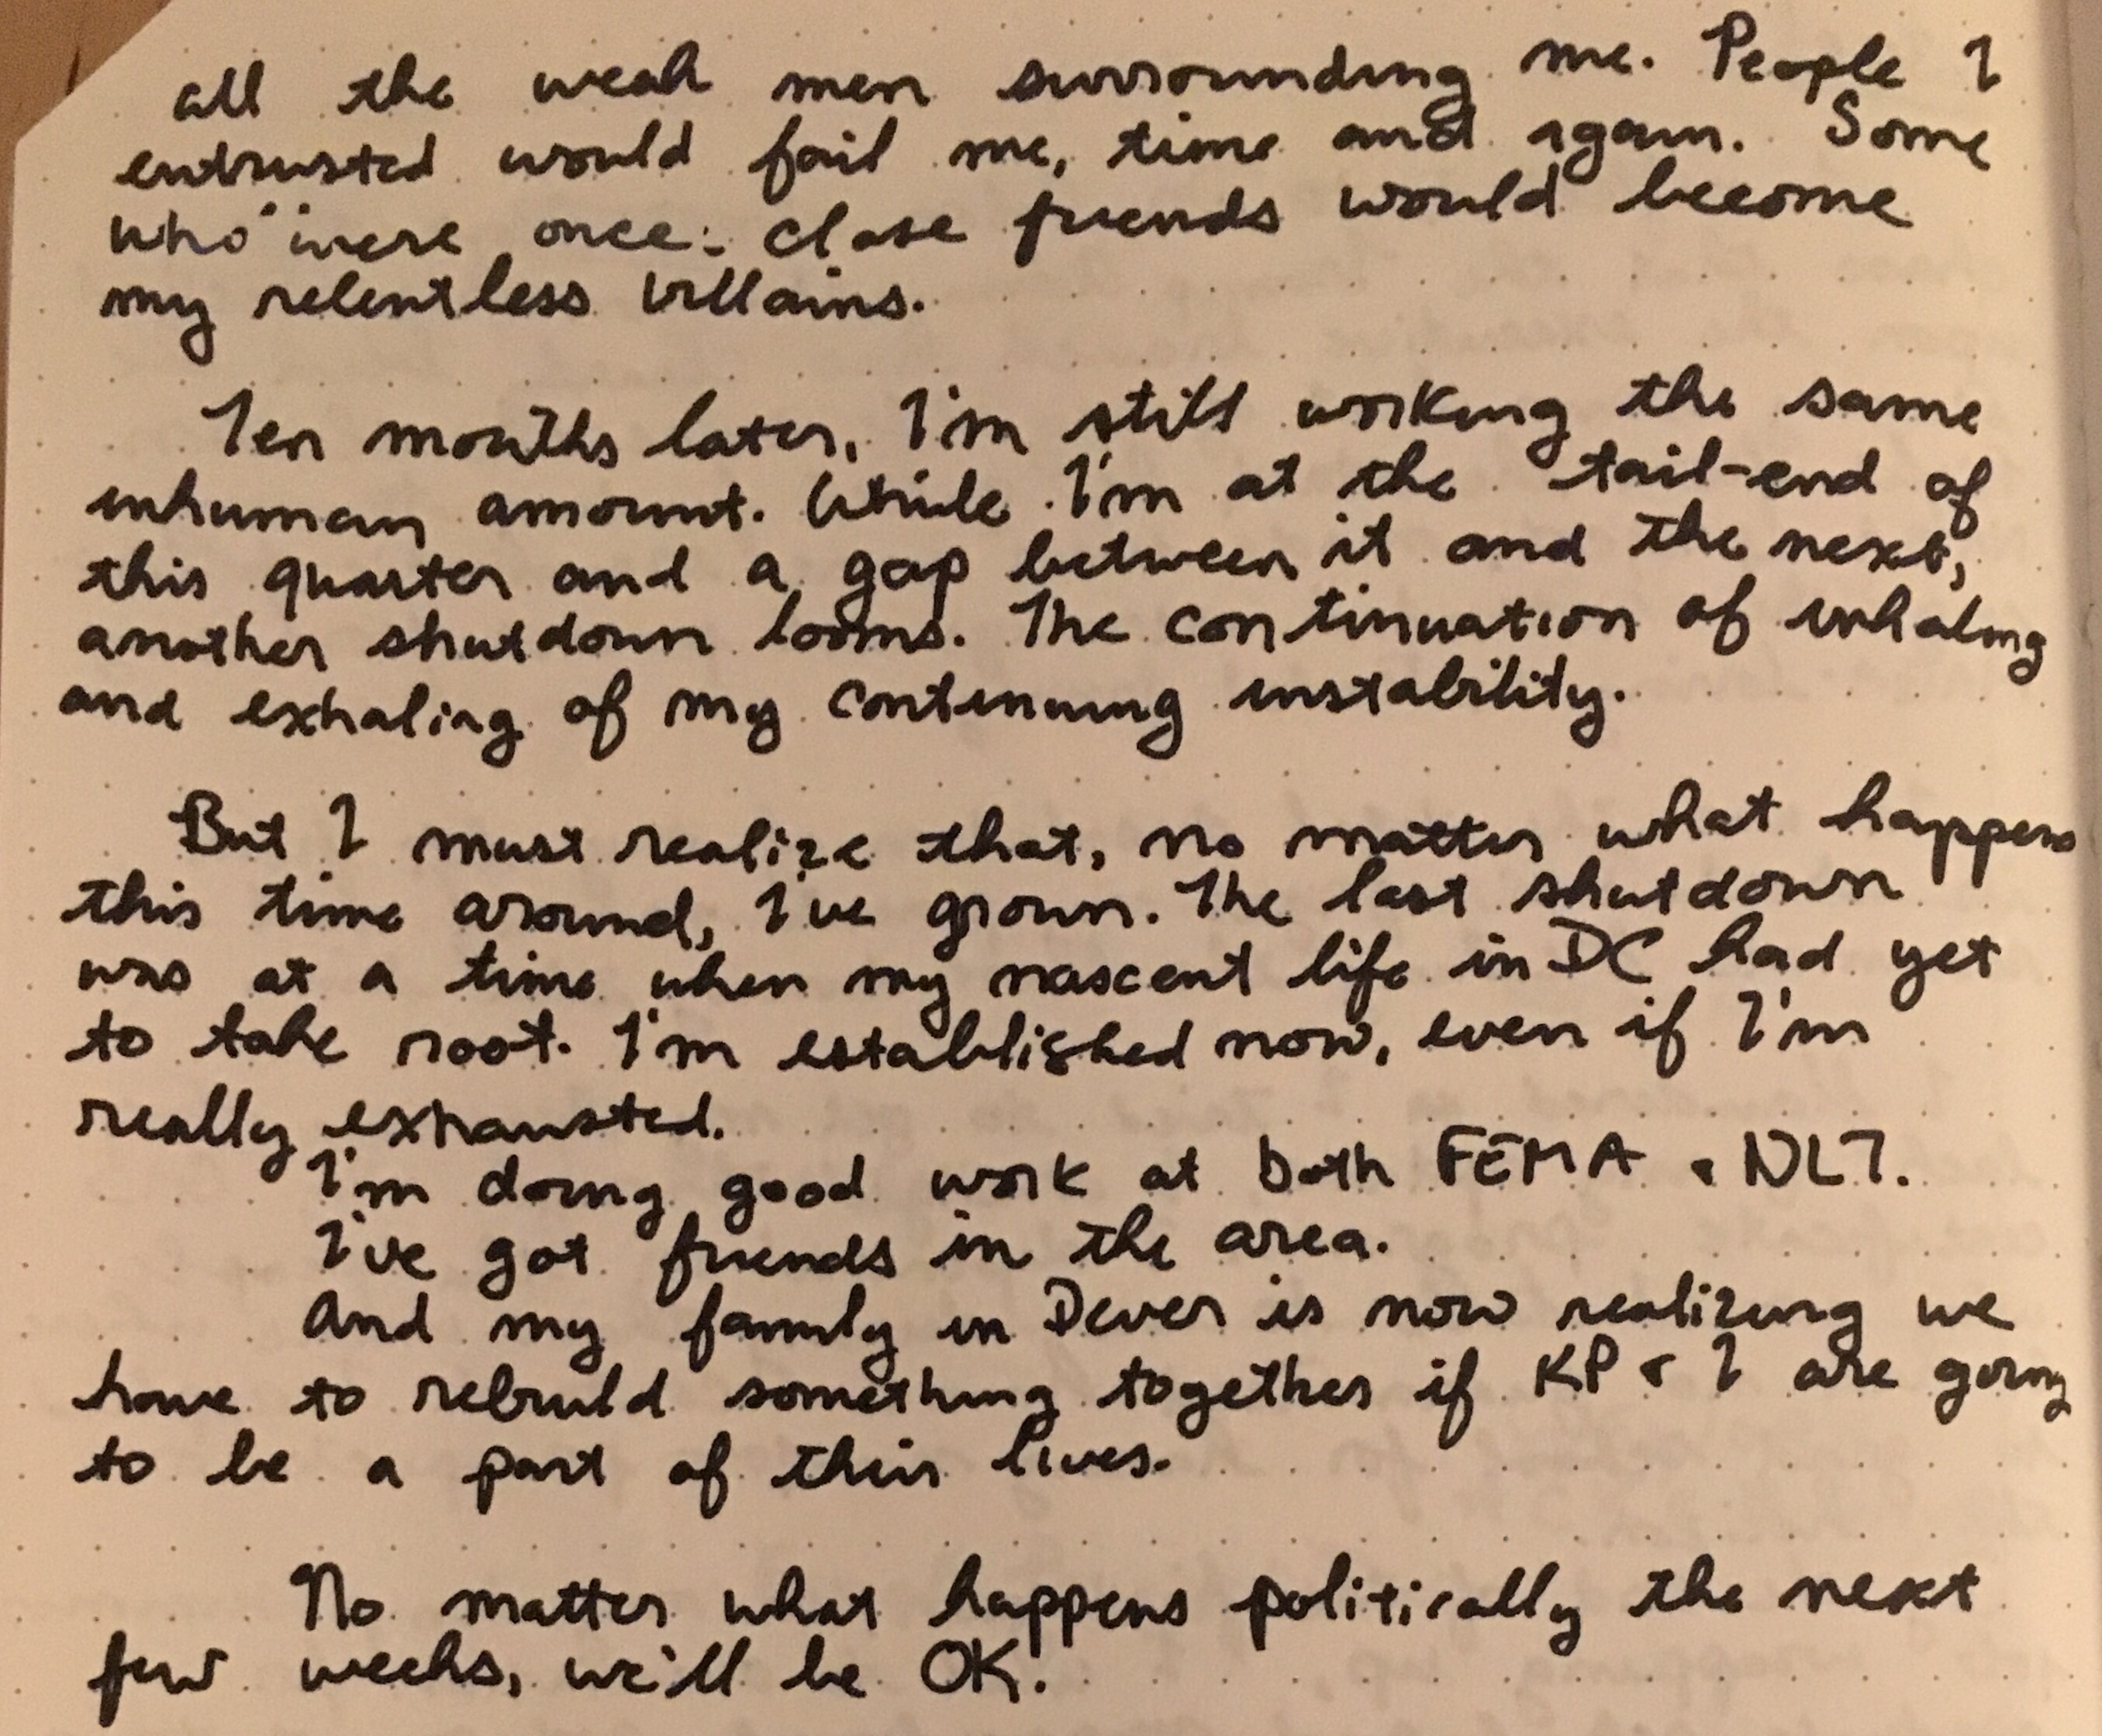 all the weak men surrounding me. People I
entrusted would fail me, time and again. Some
who were once close friends would become
my relentless villains.
Ten months later, I'm still working the same
inhuman amount. While I'm at the tail-end of
this quarter and a gap between it and the next,
another shutdown looms. The continuation of inhaling
and exhaling of my continuing instability.
But I must realize that, no matter what happens
this time around, I've grown. The last shutdown
was at a time when my nascent life in DC had yet
to take root. I'm established now, even if I'm
really exhausted.
I'm doing good work at both FEMA & NLT.
I've got friends in the area.
And my family in Dever is now realizing we
have to rebuild something together if KP & I are going
to be a part of their lives.
No matter what happens politically the next
few weeks, we'll be OK.